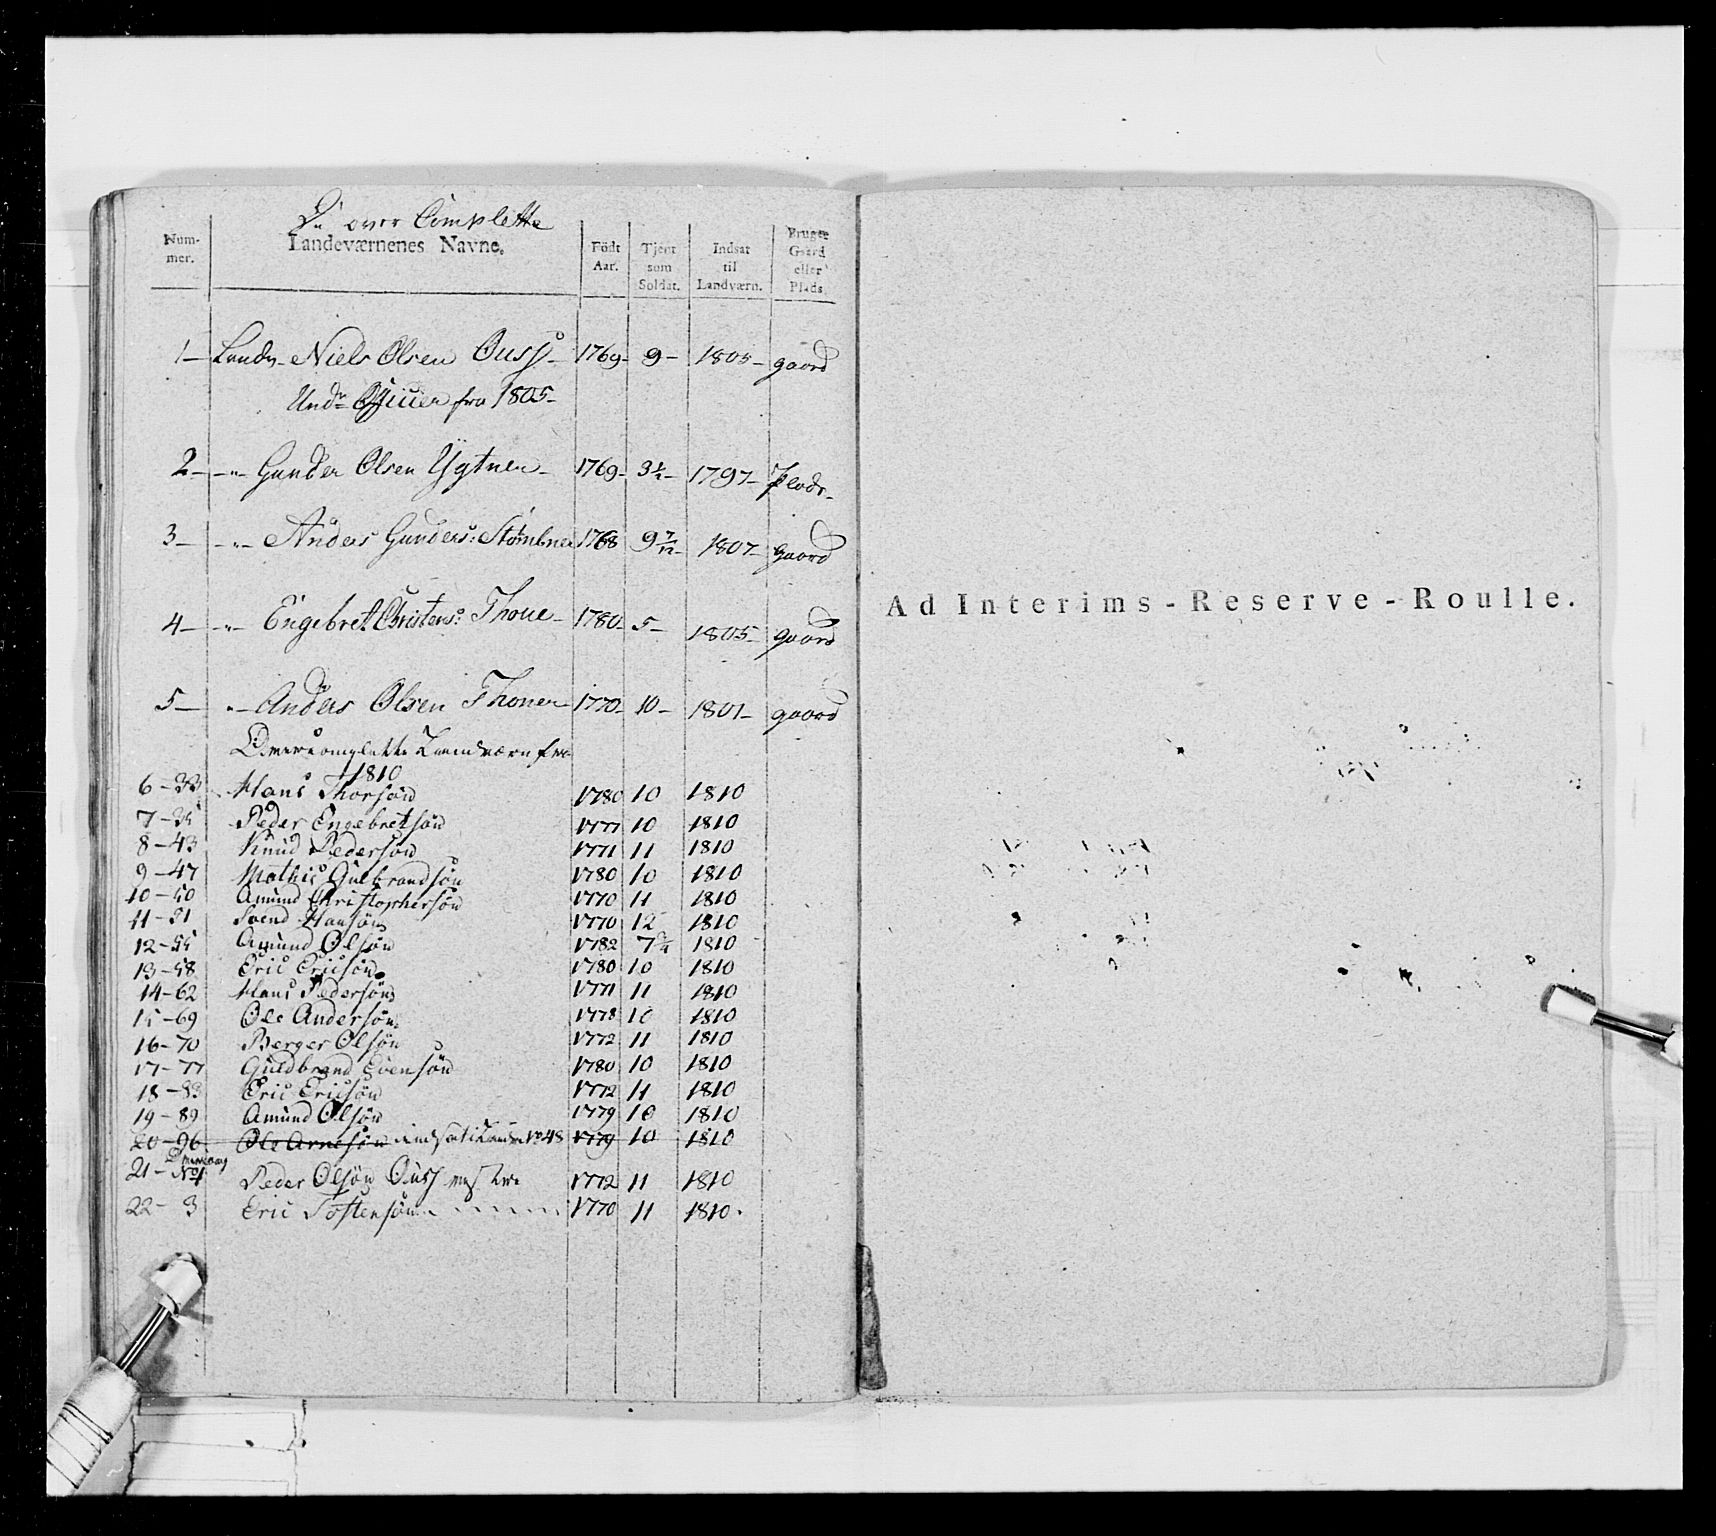 De over Complette
Num-mer. Landeværnenes Navne. Födt Aar. Tjent som Soldat. Indsat til Landværn. Bruger Gaard eller Plads.
1 — Landv. Niels Olsen 1769 — 9 — 1805 — gaard
Undr Officier fra 1805 —
2 — — " — Gunder Olsen 1769 — 3½ — 1797 — Plads —
3 — — " — Anders Gunders: 1768 9 7/12 — 1807 — gaard
4 — — " — Engebret Christens: Thone — 1780 — 5 — 1805 — gaard
5 — " — Anders Olsen Thoner — 1770 — 10 — 1801 — gaard
Overcomplette Landværn fra
1810
6 – 33 Hans Thorsøn 1780 10 1810
7 – 35 Peder Engebretsøn 1777 10 1810
8 – 43 Knud Pedersøn 1771 11 1810
9 – 47 Mathis Gulbrandsøn 1780 10 1810
10 – 50 Amund Christophersøn 1770 11 1810
11 – 51 Svend Hansøn 1770 12 1810
12 – 55 Amund Olsøn 1782 7¾ 1810
13 – 58 Eric Ericsøn 1780 10 1810
14 – 62 Hans Pedersøn 1771 11 1810
15 – 69 Ole Andersøn 1778 10 1810
16 – 70 Berger Olsøn 1772 11 1810
17 – 77 Guldbrand Evensøn 1780 10 1810
18 – 83 Eric Ericsøn 1772 11 1810
19 – 89 Amund Olsøn 1779 10 1810
20 – 96 Ole Arnesøn No 48 1779 10 1810
21 – No 1 Peder Olsøn 1772 11 1810
22 – 3 Eric Tostensøn 1770 11 1810.
Ad Interims-Reserve-Roulle.